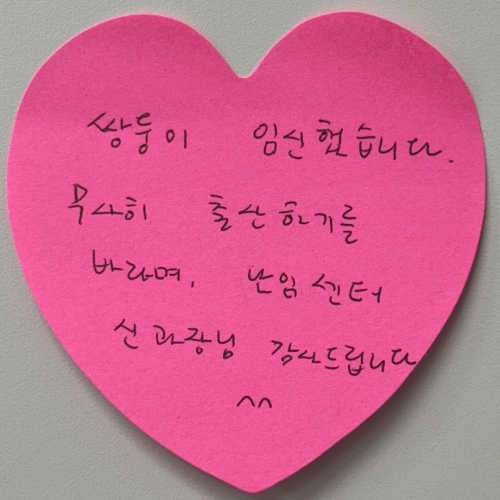 쌍둥이 임신했습니다.
무사히 출산하기를
바라며, 난임센터
신과장님 감사드립니다
^^